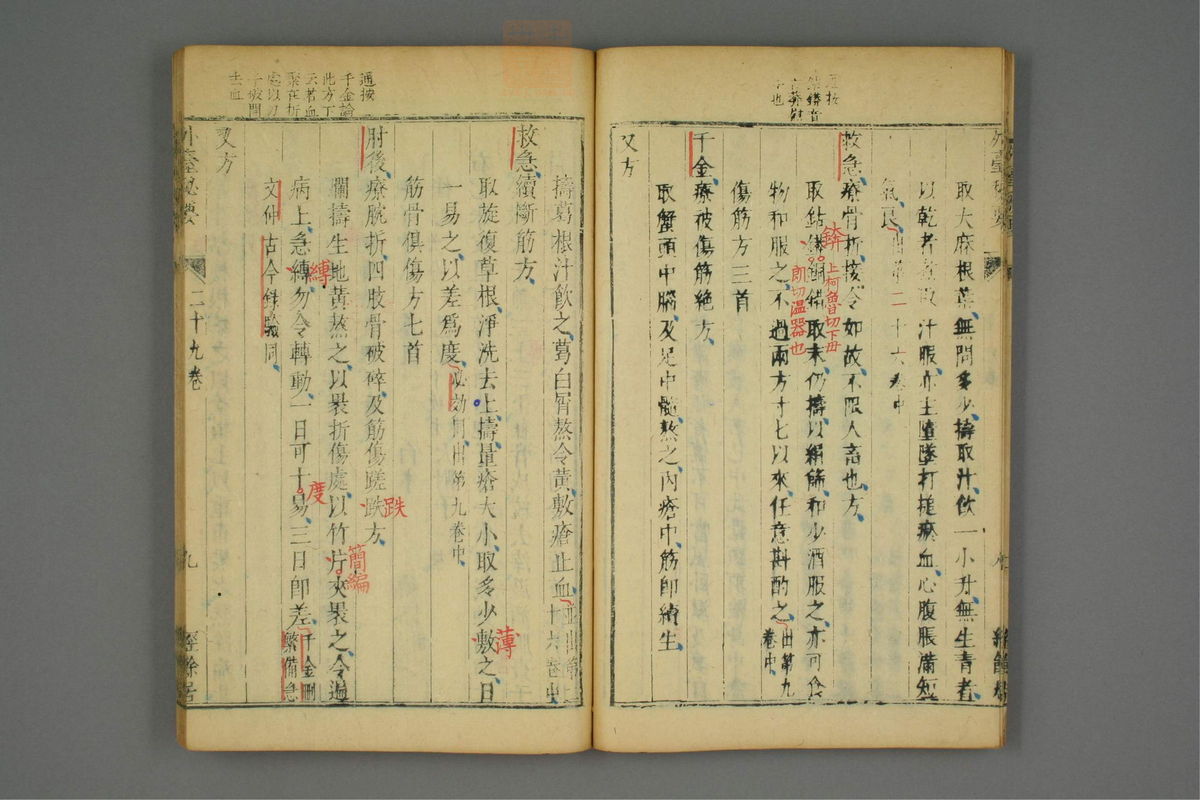 取大麻根葉無問多少擣取汁飲一小升無生青者
以乾者煮取汁服亦主墮墜打搥瘀血心腹脹滿短
氣良出第二十六卷中
救急療骨折接令如故不限人畜也方
取鈷鏻銅錯取末仍擣以絹篩和少酒服之亦可食
物和服之不過兩方寸匕以來任意斟酌之出第九卷中
傷筋方三首
千金療被傷筋絕方
取蟹頭中腦及足中髓熬之內瘡中筋即續生
又方
鉧
上柯魯切下毋
朗切溫器也
擣葛根汁飲之葛白屑熬令黃敷瘡止血並出第二十六卷中
救急續斷筋方
取旋復草根淨洗去土擣量瘡大小取多少敷之日
一易之以差為度必効同出第九卷中
筋骨俱傷方七首
肘後療腕折四肢骨破碎及筋傷蹉跌方
爛擣生地黃熬之以裹折傷處以竹片夾裹之令遍
病上急縛勿令轉動一日可十易三日即差千金刪繁備急
文仲古今錄驗同
又方
薄
跌
簡編
縛
度
通按
千金論
此方下
云若血
聚在折
處以刀
子破開
去血
外臺祕要
二十九卷
九
經餘居